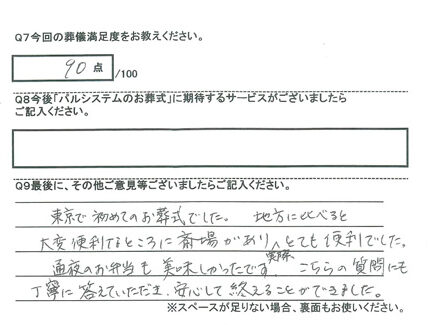 Q7今回の葬儀満足度をお教えください。
90 点 /100
Q8今後「パルシステムのお葬式」に期待するサービスがございましたら
ご記入ください。
Q9最後に、その他ご意見等ございましたらご記入ください。
東京で初めてのお葬式でした。 地方に比べると
大変便利なところに斎場があり、とても便利でした。
通夜のお弁当も美味しかったです。 こちらの質問にも
丁寧に答えていただき、安心して終えることができました。
※スペースが足りない場合、裏面もお使いください。